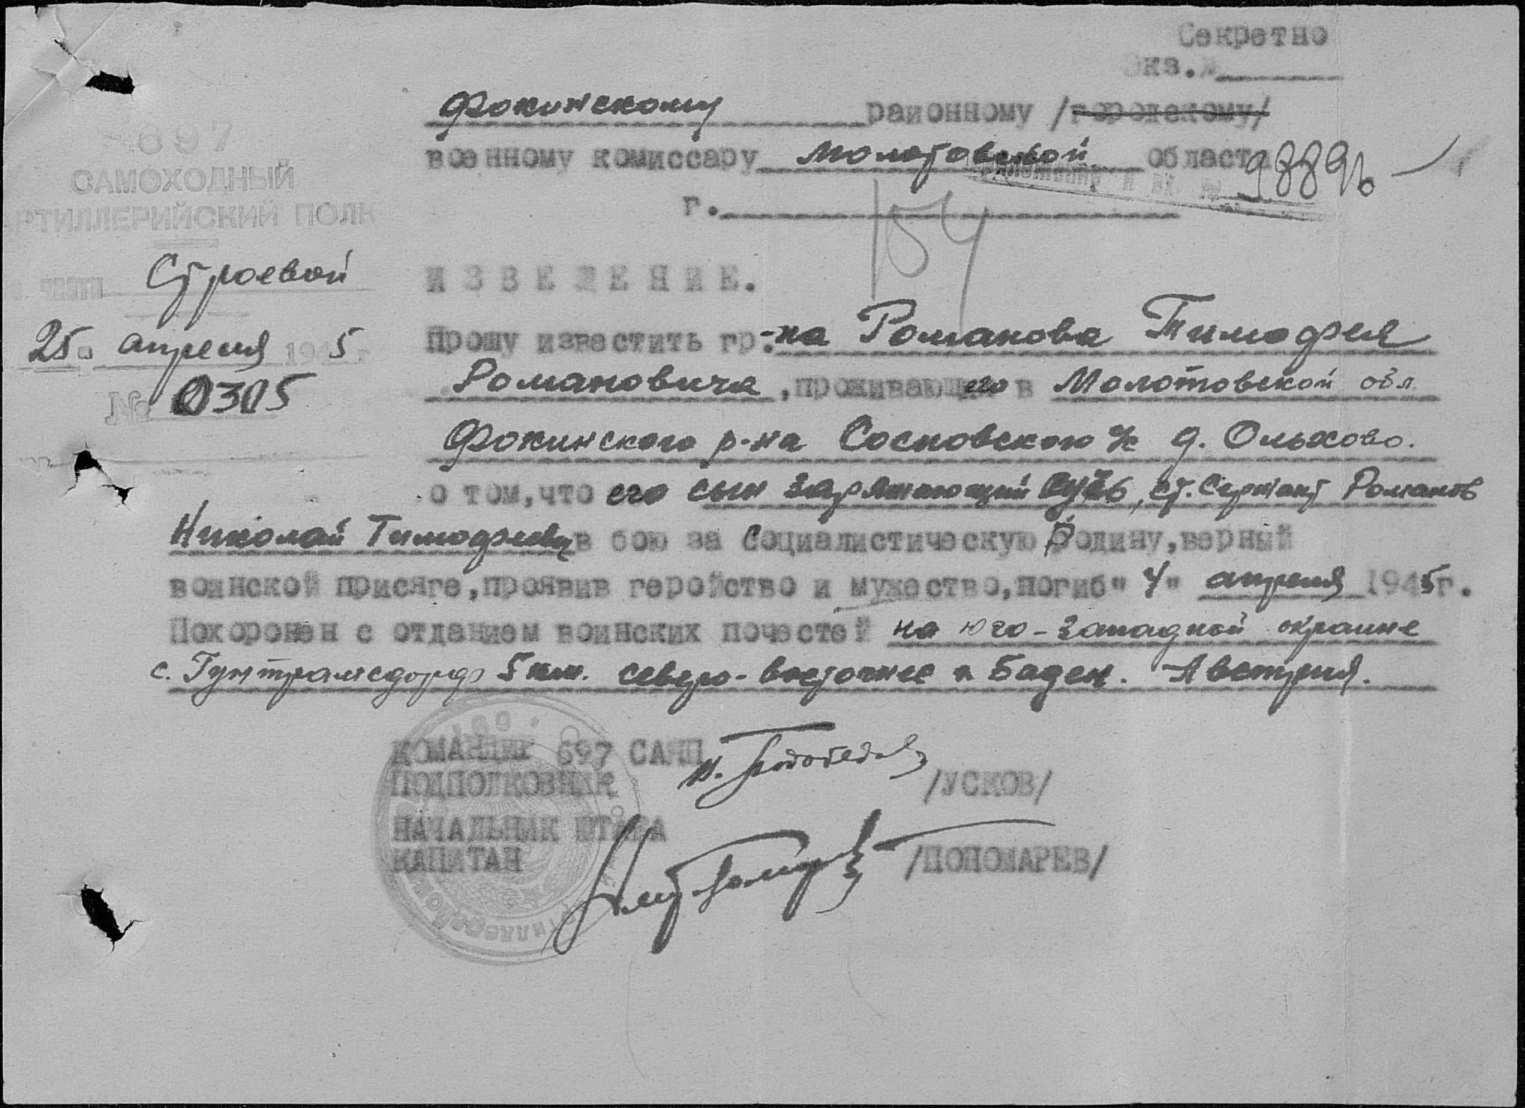 Секретно
Экз.№
Фокинскому районному /городскому/
военному комиссару Молотовской области
98896
г.
154
697
САМОХОДНЫЙ
АРТИЛЛЕРИЙСКИЙ ПОЛК
части Строевой
25 апреля 1945 г
№ 0305
ИЗВЕЩЕНИЕ.
Прошу известить гр.-на Романова Тимофея
Романовича, проживающего в Молотовской обл
Фокинского р-на Сосновского с/с д. Ольхово.
о том, что его сын заряжающий СУ76, ст. Сержант Романов
Николай Тимофеевич в бою за Социалистическую Родину, верный
воинской присяге, проявив геройство и мужество, погиб "4" апреля 1945г.
Похоронен с отданием воинских почестей на юго-западной окраине
с. Гунтрамсдорф 5 км. северо-восточнее г. Баден. Австрия.
КОМАНДИР 697 САП
ПОДПОЛКОВНИК /УСКОВ/
НАЧАЛЬНИК ШТАБА
КАПИТАН /ПОНОМАРЕВ/